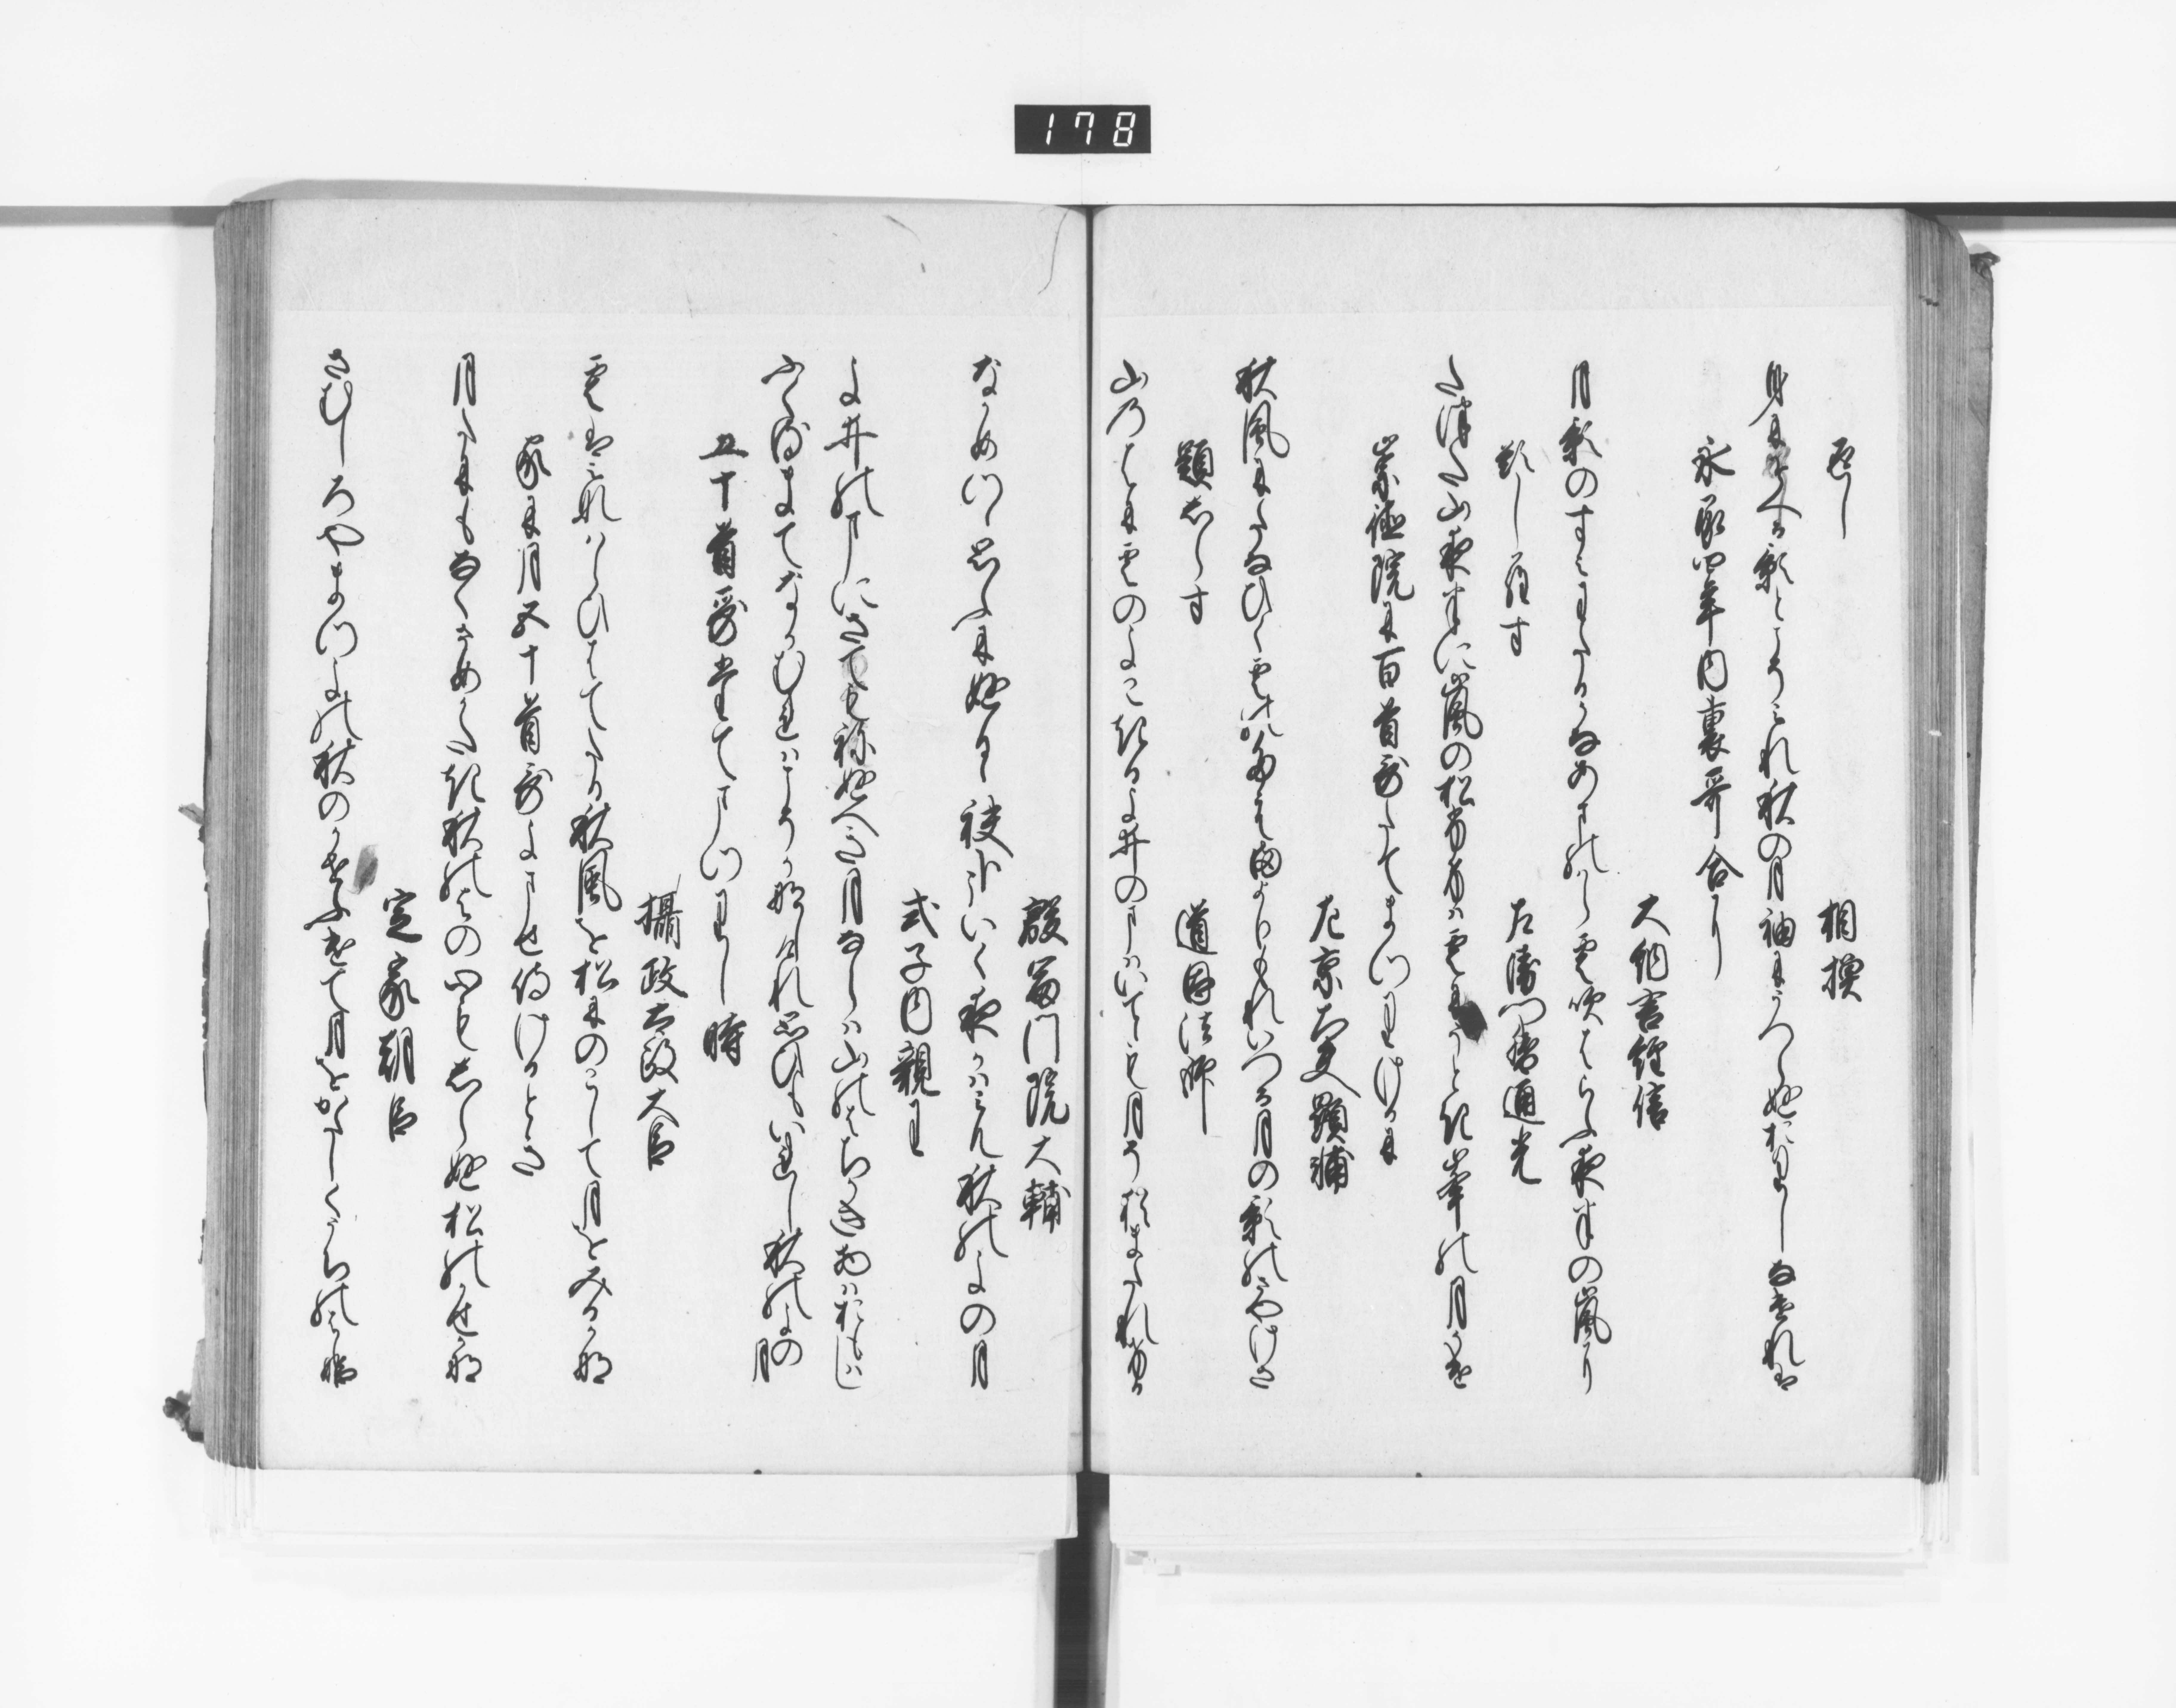 178
返し
相模
身にそへる影とこそみれ秋の月袖にうつらぬおりしなけれは
永承四年内裏哥合に
大納言経信
月影のすみわたるかなあまのはら雲吹はらふ夜半の嵐に
題しらす
左衛門督通光
たつた山夜半に嵐の松ふけは雲にはうとき峯の月かけ
崇徳院に百首哥たてまつりけるに
左京大夫顕輔
秋風にたなひく雲のたえまよりもれいつる月の影のさやけさ
題しらす
道因法師
山のはに雲のよこきるよゐのまはいてても月そ猶またれける
殷富門院大輔
なかめつつ思ふにぬるる袂かないく夜かはみん秋のよの月
式子内親王
よゐのまにさてもねぬへき月ならは山のはちかき物はおもはし
ふくるまてなかむれはこそかなしけれ思ひもいれし秋のよの月
五十首哥たてまつりし時
摂政太政大臣
雲はみなはらひはてたる秋風を松にのこして月をみるかな
家に月五十首哥よませ侍けるとき
月たにもなくさめかたき秋のよの心もしらぬ松のかせかな
定家朝臣
さむしろやまつよの秋の風ふけて月をかたしくうちのはし姫